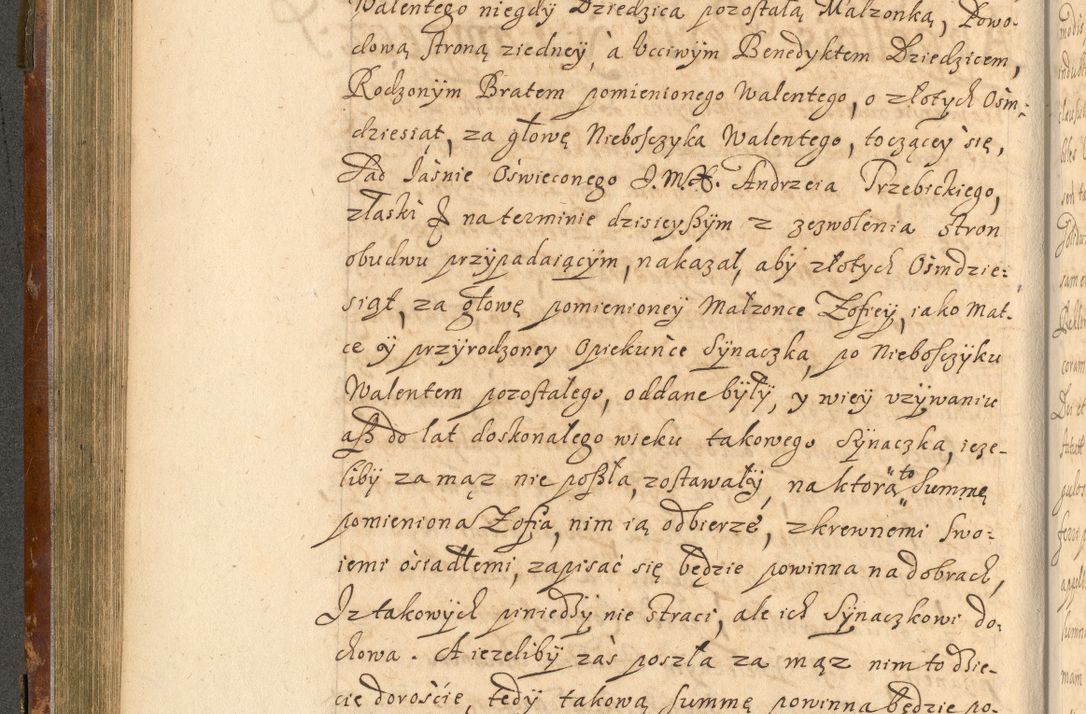 Walentego niegdÿ Dziedzica pozostałą Małzonką, Powo-
dową stroną ziedneÿ, à Vcciwÿm Benedyktem Dziedzicem,
Rodzonÿm Bratem pomienionego Walentego, o złotych Ośm-
dziesiąt, za głowę Niebosczyka Walentego, toczącey się,
Sąd Jaśnie Oświeconego J.M.X. Andrzeia Trzebickiego,
złaski na terminie dzisieyßÿm z zezwolenia stron
obudwu przÿpadaiącÿm, nakazał, abÿ złotych Ośmdzie:
siąt, za głowę pomienioneÿ Małzonce Zofieÿ, iako Mat-
ce ÿ przÿrodzoney Opiekunce Sÿnaczka, po Niebosczÿku
Walentem pozostałego, oddane bÿłÿ, y wieÿ vzÿwaniu
aß do lat doskonałego wieku takowego Sÿnaczka, ieze-
libÿ zamąz nie poßła, zostawałÿ, na ktorą to Summę
pomieniona Zofia, nim ią odbierze, zkrewnemi swo:
iemi ośiadłemi, zapisać się będzie powinna nadobrach,
Iz takowÿch pieniedzÿ nie straci, ale ich Sÿnaczkowi do:
chowa. A iezelibÿ zaś poszła za mąz nim to dzie-
cię dorościę, tedÿ takową summę powinna będzie po-